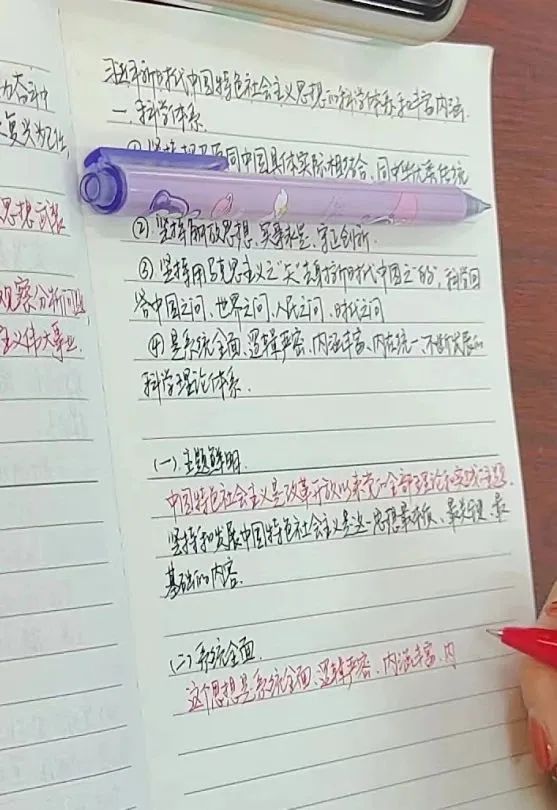 力奋斗
复兴为己任,
思想武装
观察分析问题
主义伟大事业.
习近平新时代中国特色社会主义思想的科学体系和丰富内涵.
一.科学体系.
同中国具体实际相结合、同中华优秀传统
② 坚持解放思想、实事求是、守正创新.
③ 坚持用马克思主义之"矢"去射新时代中国之"的",科学回
答中国之问、世界之问、人民之问、时代之问
④ 是系统全面、逻辑严密、内涵丰富、内在统一、不断发展的
科学理论体系.
(一)主题鲜明.
中国特色社会主义是改革开放以来党的全部理论和实践主题.
坚持和发展中国特色社会主义是这一思想最核心、最关键、最
基础的内容.
(二)系统全面.
这个思想是系统全面、逻辑严密、内涵丰富、内